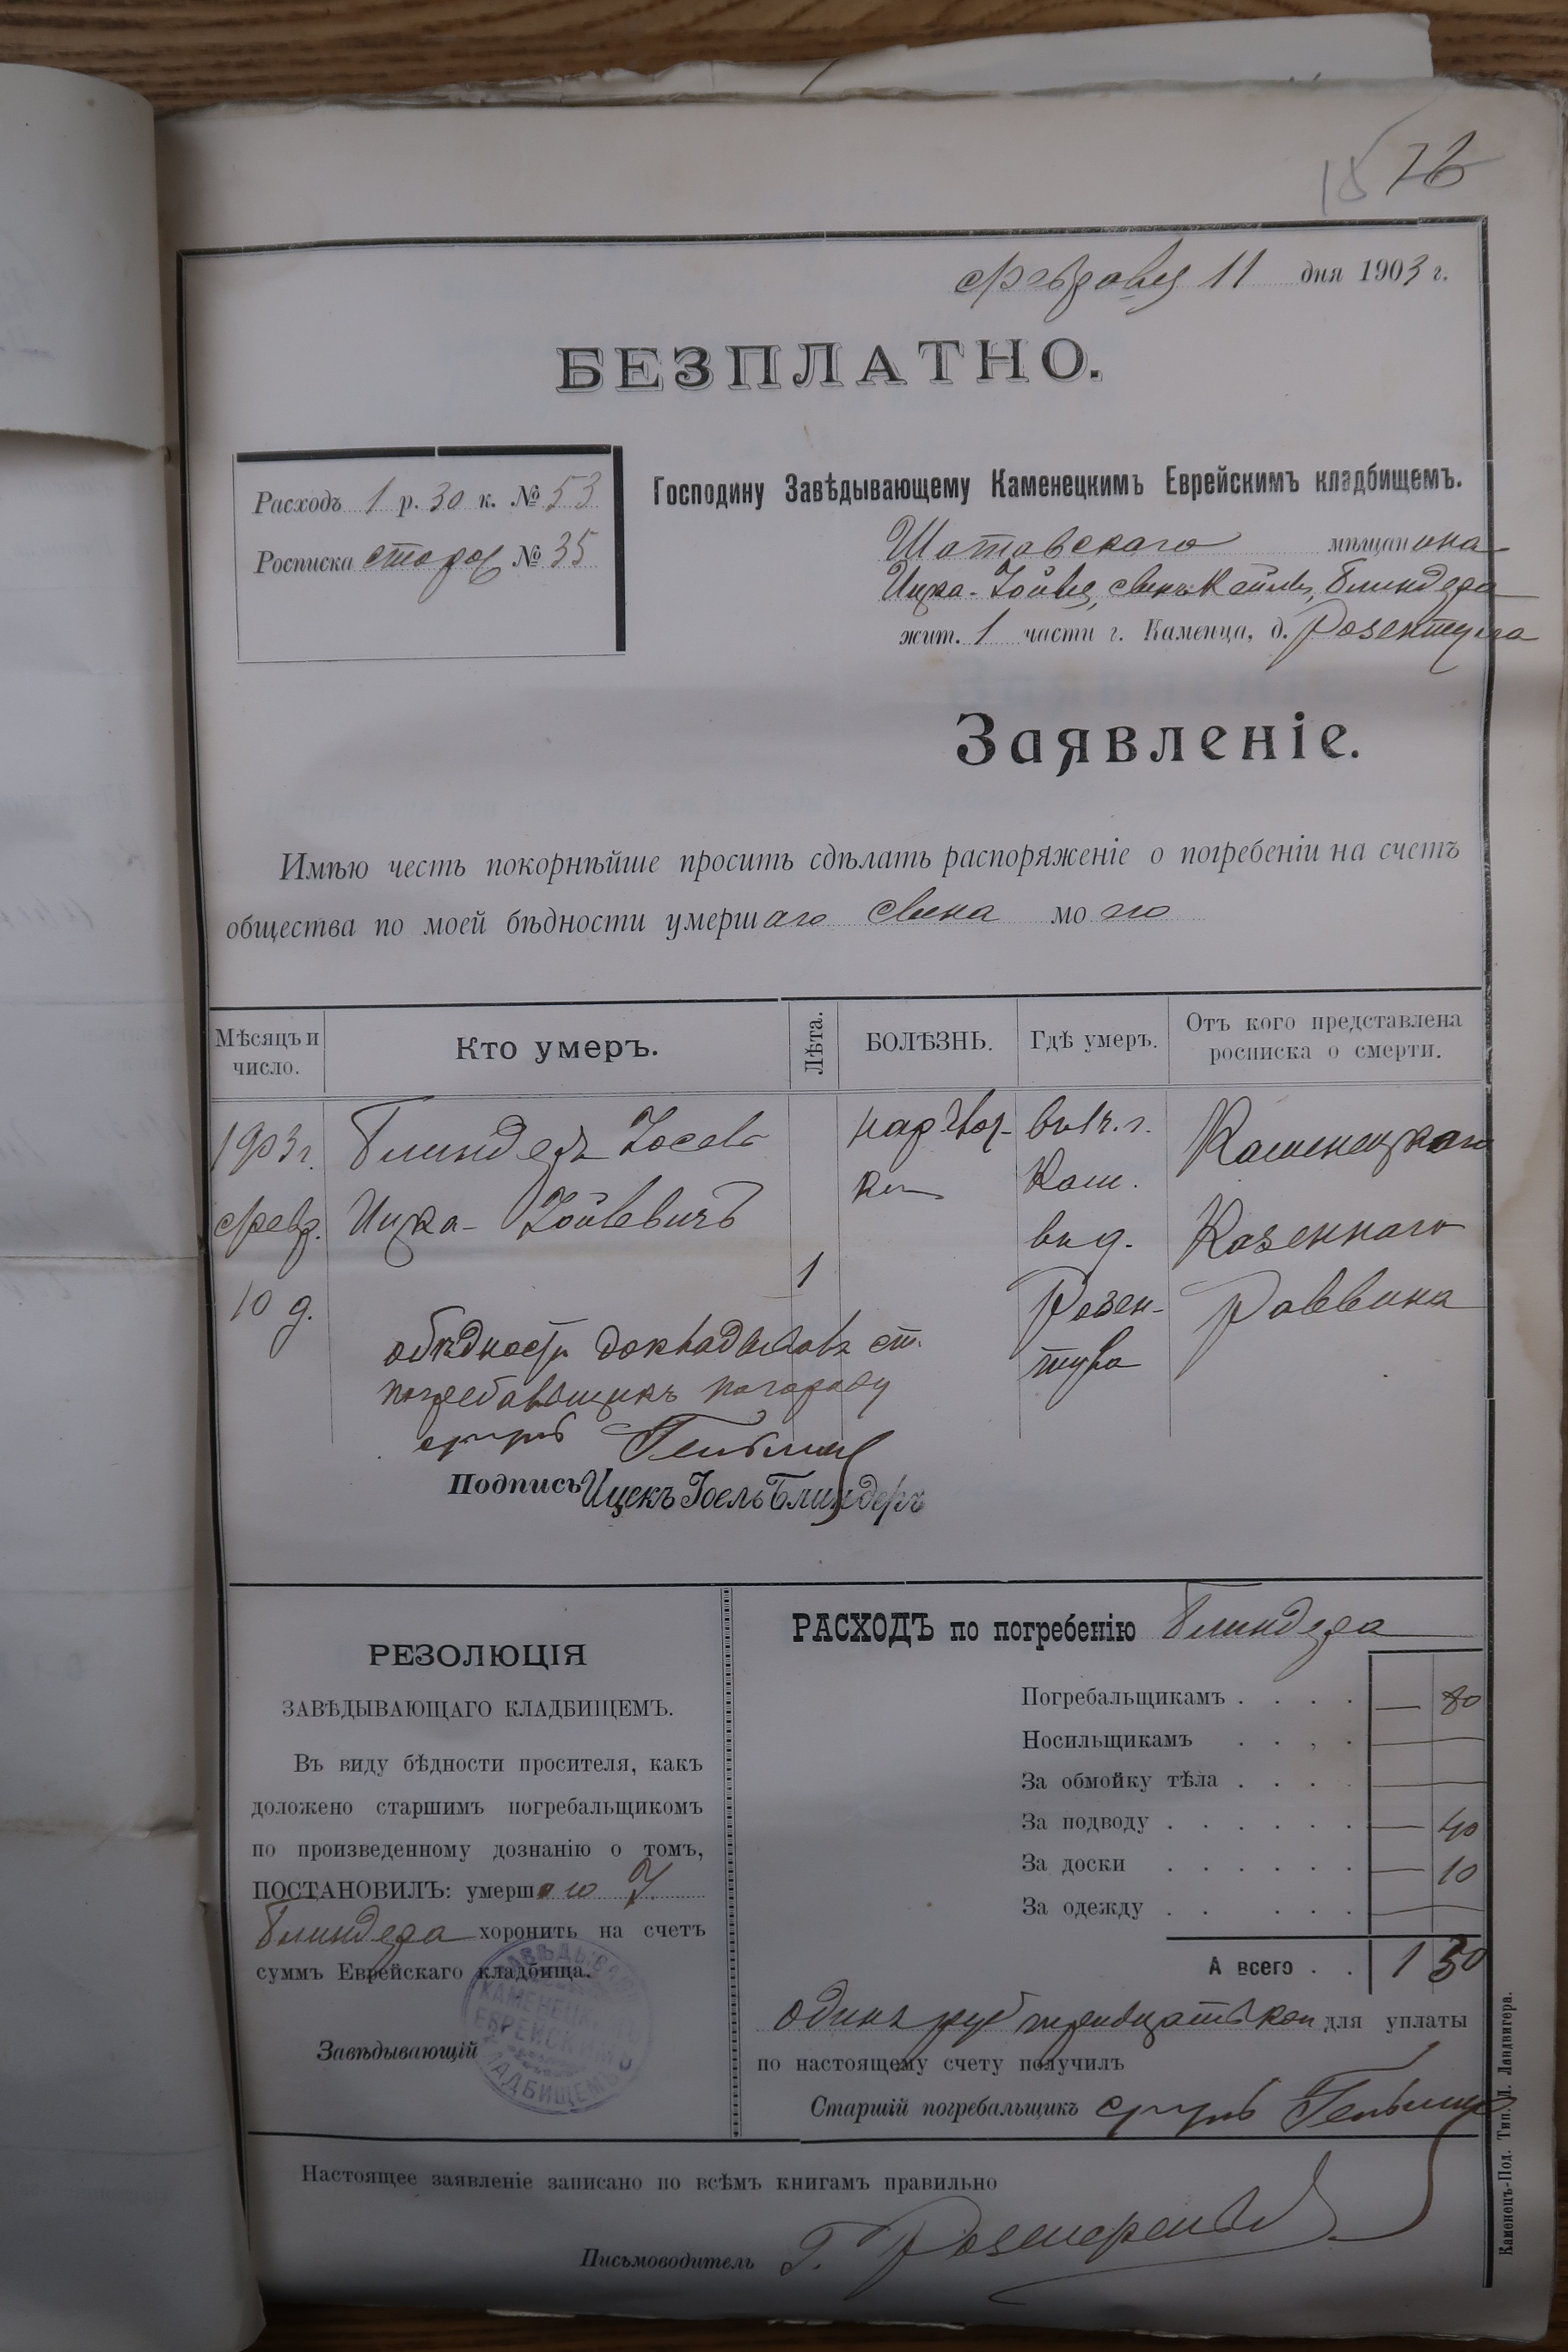 76
Февраля 11 дня 1903 г.
БЕЗПЛАТНО.
Расходъ 1 р. 30 к. № 53
Росписка сторож № 35
Господину Завѣдывающему Каменецкимъ Еврейскимъ кладбищемъ.
Шатавскаго мѣщанина
Ицка-Іойля, Блиндера
жит. 1 части г. Каменца, д. Розентула
Заявленіе.
Имѣю честь покорнѣйше просить сдѣлать распоряженіе о погребеніи на счетъ
общества по моей бѣдности умершаго сына моего
Мѣсяцъ и число.
Кто умеръ.
Лѣта.
БОЛѢЗНЬ.
Гдѣ умеръ.
Отъ кого представлена росписка о смерти.
1903 г.
февр.
10 д.
Блиндеръ Іосель
Ицка-Іойлевичъ
1
въ г.
Кам.
въ д.
Розен-
тула
Каменецкаго
Казеннаго
Раввина
о бѣдности докладывалъ ст.
погребальщикъ
Гельман
Подпись Ицекъ Іоель Блиндеръ
РЕЗОЛЮЦІЯ
ЗАВѢДЫВАЮЩАГО КЛАДБИЩЕМЪ.
Въ виду бѣдности просителя, какъ
доложено старшимъ погребальщикомъ
по произведенному дознанію о томъ,
ПОСТАНОВИЛЪ: умершаго І.
Блиндера хоронить на счетъ
суммъ Еврейскаго кладбища.
Завѣдывающій
ЗАВѢДЫВАЮЩ КАМЕНЕЦК ЕВРЕЙСКИМЪ КЛАДБИЩЕМЪ
РАСХОДЪ по погребенію Блиндера
Погребальщикамъ . . . . — 80
Носильщикамъ . . . . —
За обмойку тѣла . . . . —
За подводу . . . . . . — 40
За доски . . . . . . — 10
За одежду . . . . . —
А всего . . 1 30
одинъ руб тридцать коп для уплаты
по настоящему счету получилъ
Старшій погребальщикъ Гельман
Настоящее заявленіе записано по всѣмъ книгамъ правильно
Письмоводитель Г.
Каменецъ-Под. Тип. Л. Ландвигера.